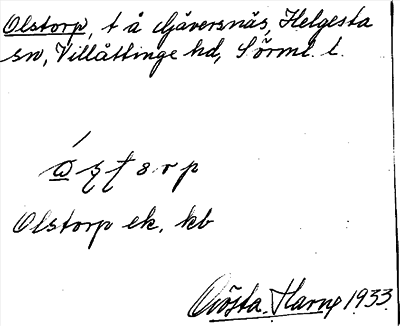 Olstorp, t å Gåversnäs, Helgesta
sn, Villåttinge hd, Sörml. l.
Olstorp ek. kb
Gösta Harne 1933.